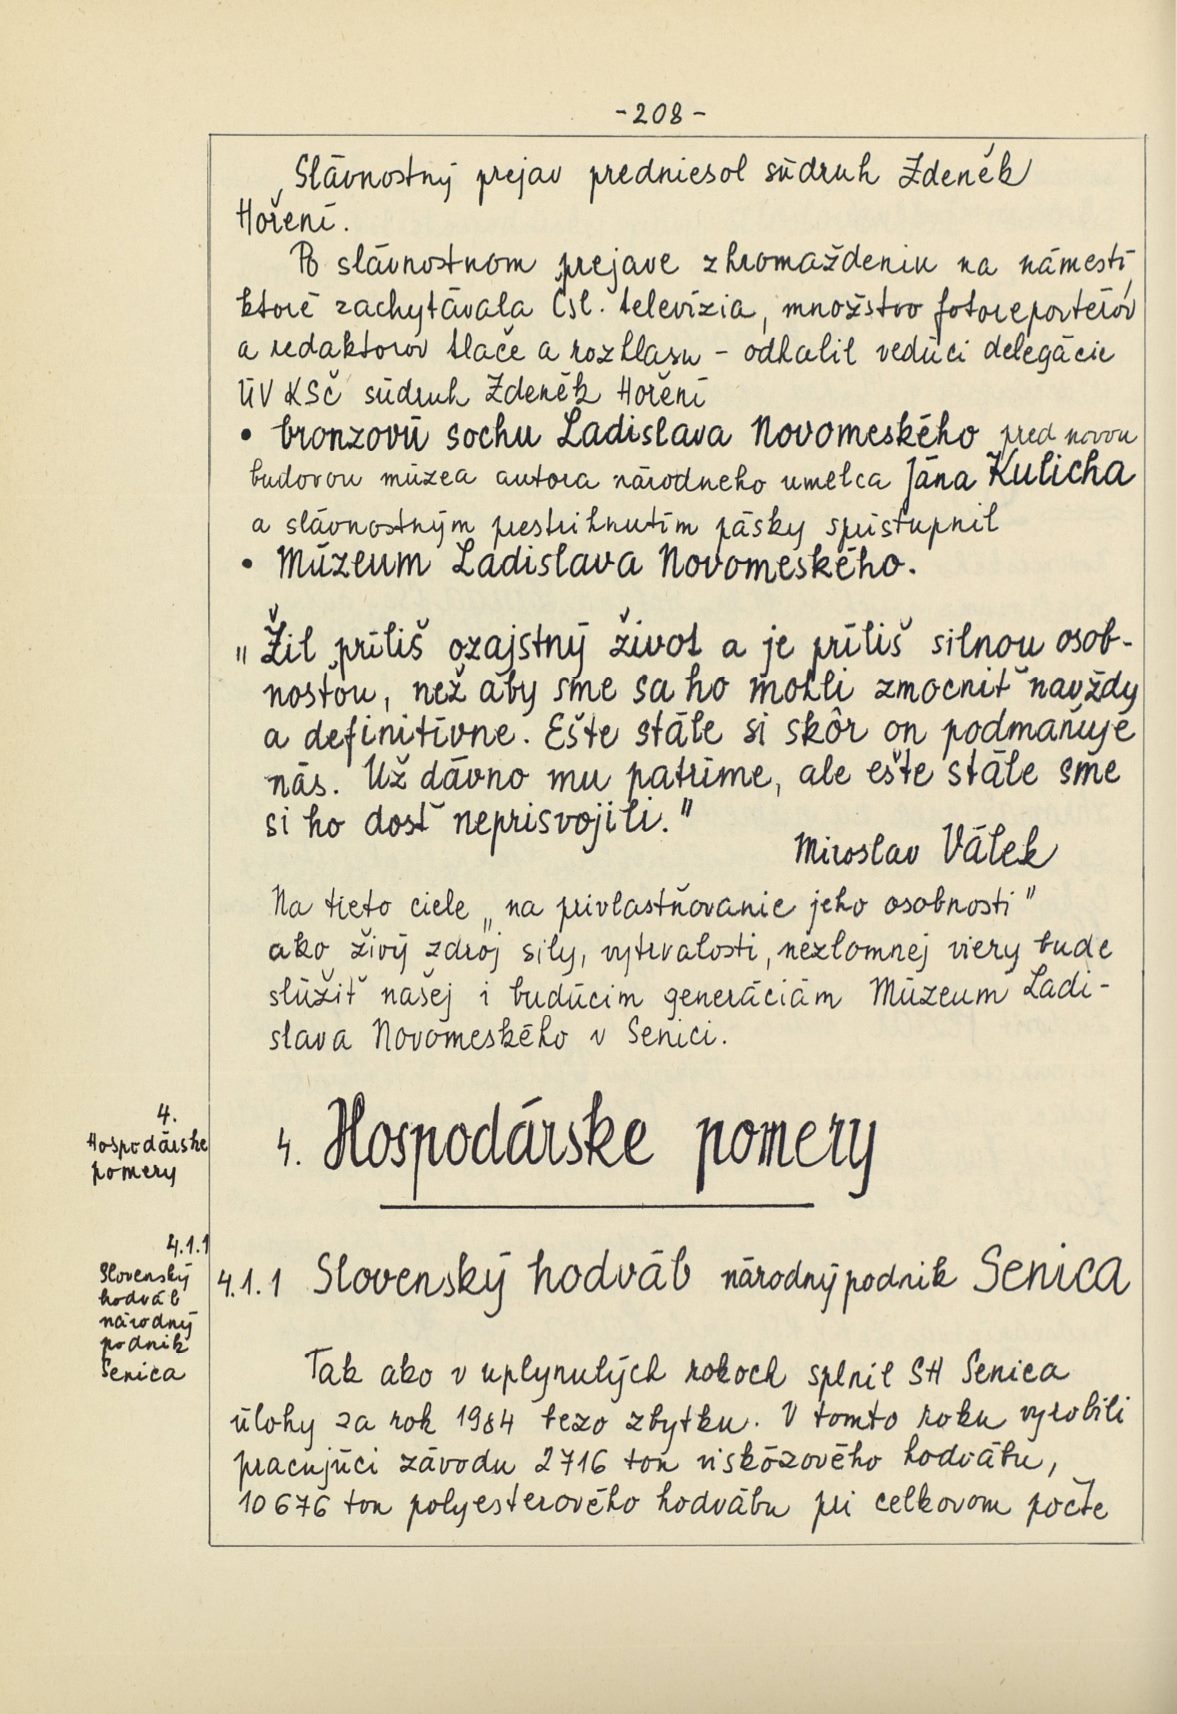 -208-
Slávnostný prejav predniesol súdruh Zdeněk
Hoření.
Po slávnostnom prejave zhromaždeniu na námestí,
ktoré zachytávala Čsl. televízia, množstvo fotoreportérov
a redaktorov tlače a rozhlasu - odhalil vedúci delegácie
ÚV KSČ súdruh Zdeněk Hoření
• bronzovú sochu Ladislava Novomeského pred novou
budovou múzea autora národneho umelca Jána Kulicha
a slávnostným prestrihnutím pásky sprístupnil
• Múzeum Ladislava Novomeského.
„Žil príliš ozajstný život a je príliš silnou osob-
nosťou, než aby sme sa ho mohli zmocniť navždy
a definitívne. Ešte stále si skôr on podmaňuje
nás. Už dávno mu patríme, ale ešte stále sme
si ho dosť neprisvojili."
Miroslav Válek
Na tieto ciele „na privlastňovanie jeho osobnosti"
ako živý zdroj sily, vytrvalosti, nezlomnej viery bude
slúžiť našej i budúcim generáciám Múzeum Ladi-
slava Novomeského v Senici.
4.
Hospodárske
pomery
4. Hospodárske pomery
4.1.1
Slovenský
hodváb
národný
podnik
Senica
4.1.1 Slovenský hodváb národný podnik Senica
Tak ako v uplynulých rokoch splnil SH Senica
úlohy za rok 1984 bezo zbytku. V tomto roku vyrobili
pracujúci závodu 2716 ton viskózového hodvábu,
10676 ton polyesterového hodvábu pri celkovom počte